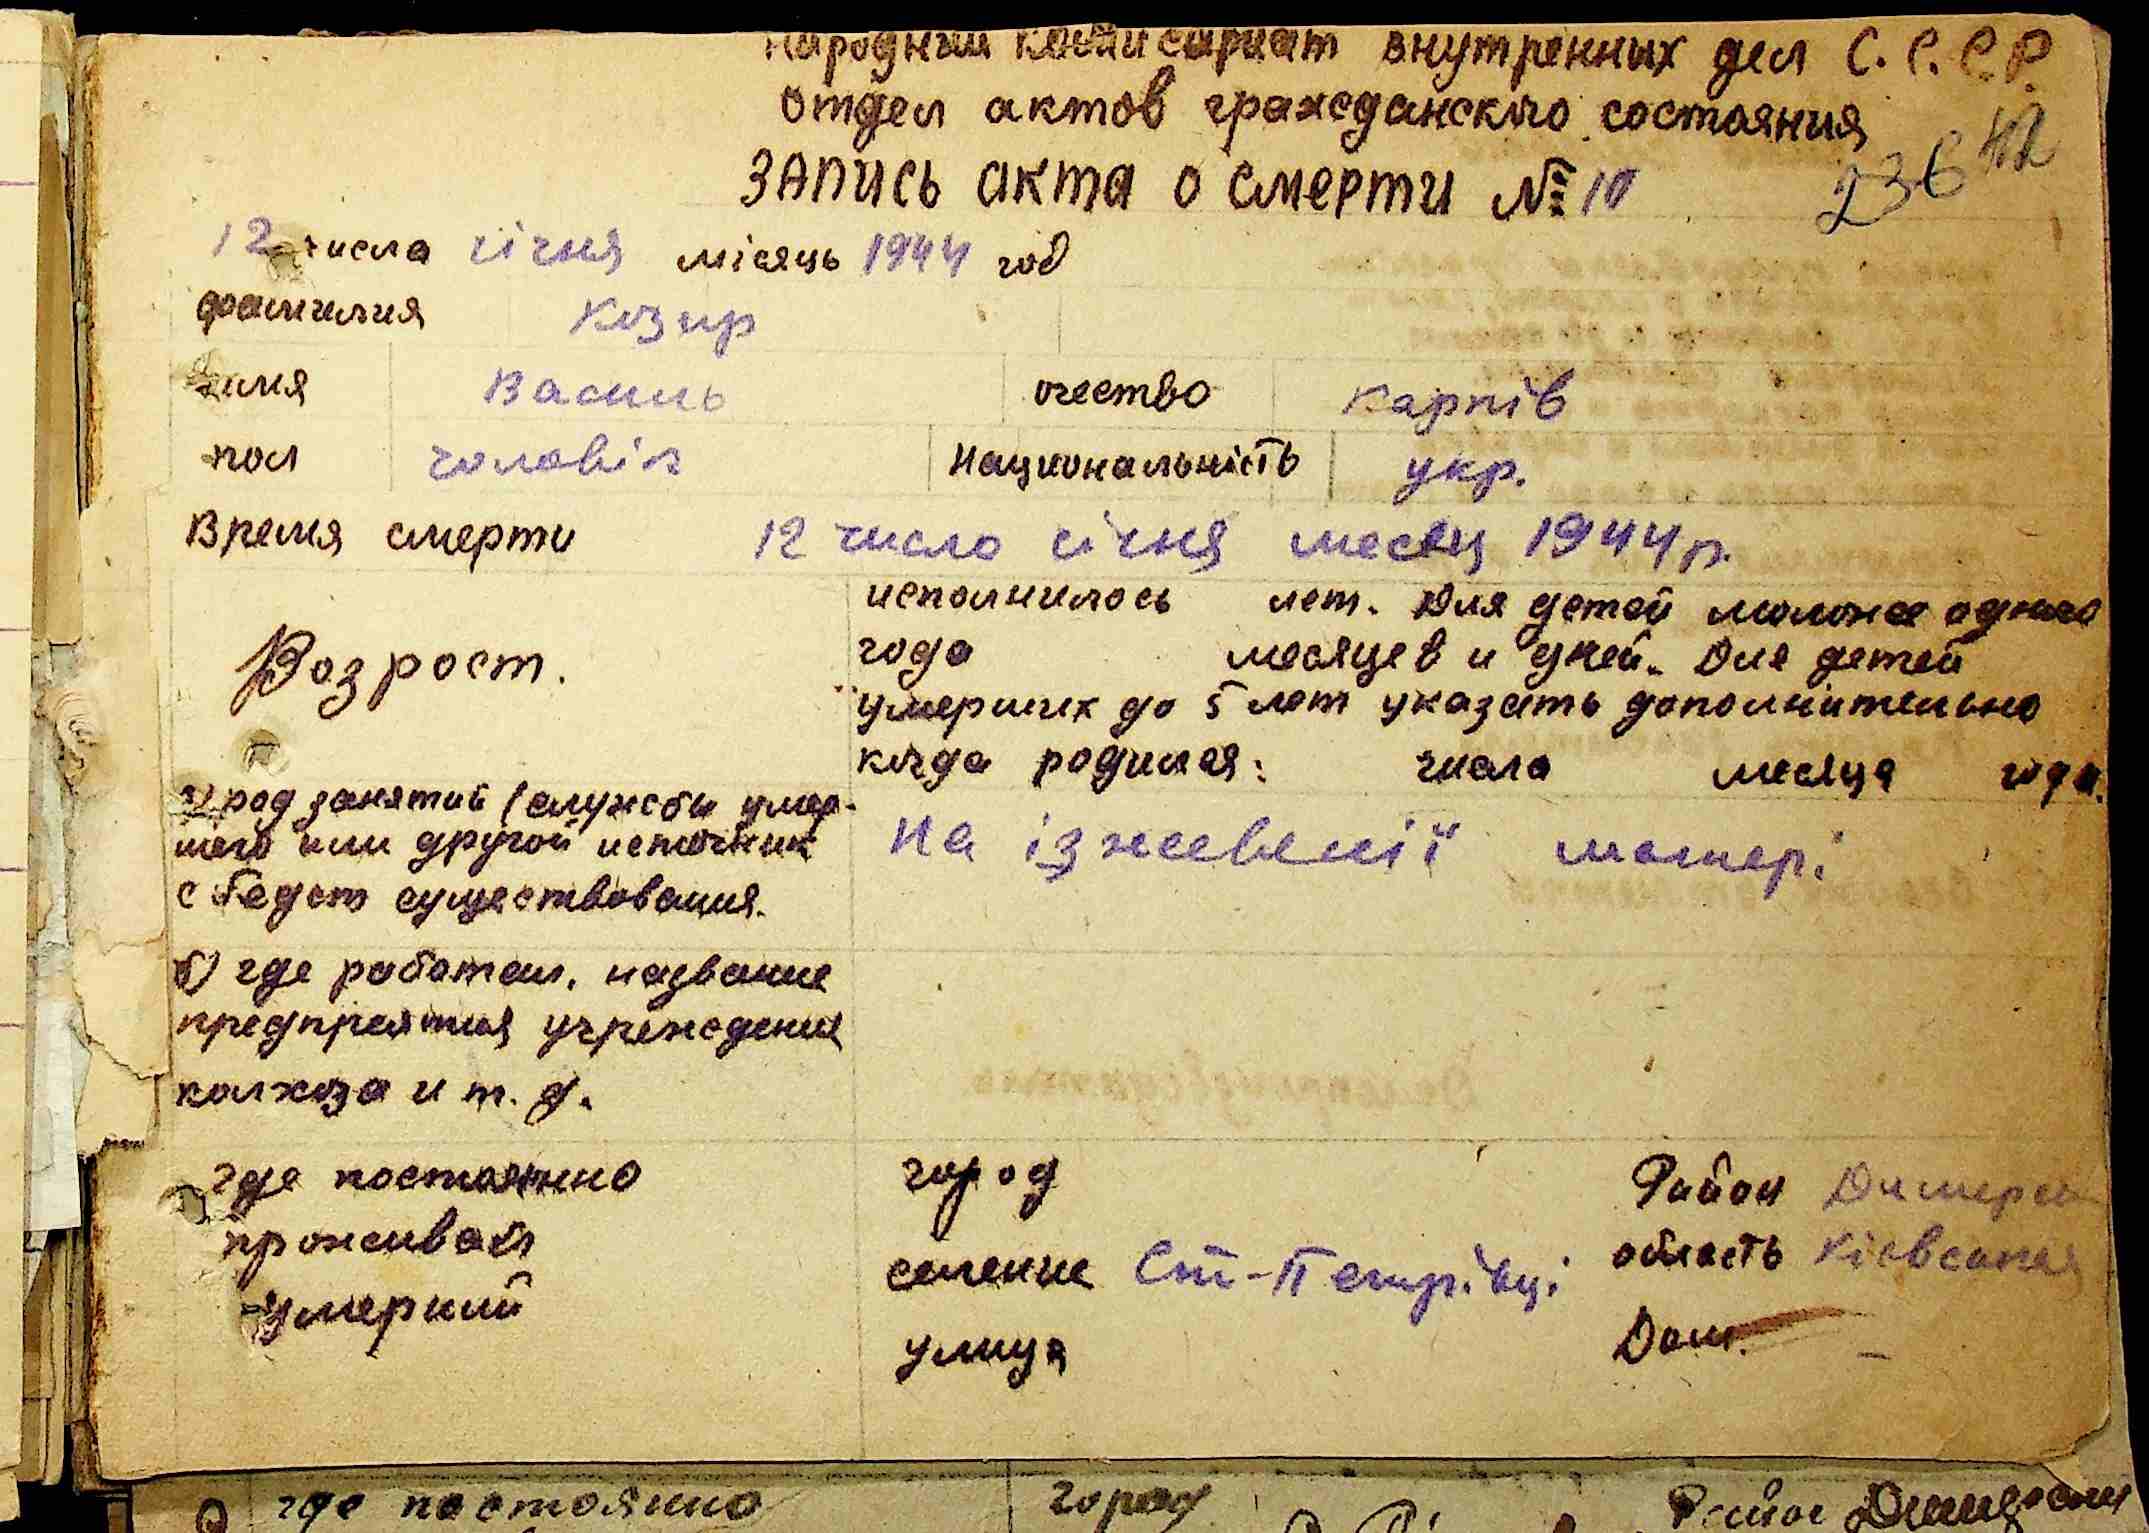 Народный комисариат внутренных дел С.С.С.Р.
отдел актов гражсданского состояния
ЗАПИСЬ акта о смерти №10
236 42
12 числа січня місяць 1944 год
фамилия Козир
имя Василь очество Карпів
пол чоловік Национальність укр.
Время смерти 12 число січня месяц 1944 р.
исполнилось лет. Для детей моложе одного
Возрост. года месяцев и дней. Для детей
умерших до 5 лет указать дополнительно
когда родился: числа месяца года.
а) род занятий (службы умер-
шего или другой источник На іждевенії матері
средст существования.
б) где работал, название
предприятия учреждения
колхоза и т. д.
где постоянно город Район Димерск
проживал селение Ст-Петрівці область Кієвская
умерший улица Дом. –
где постоянно город Район